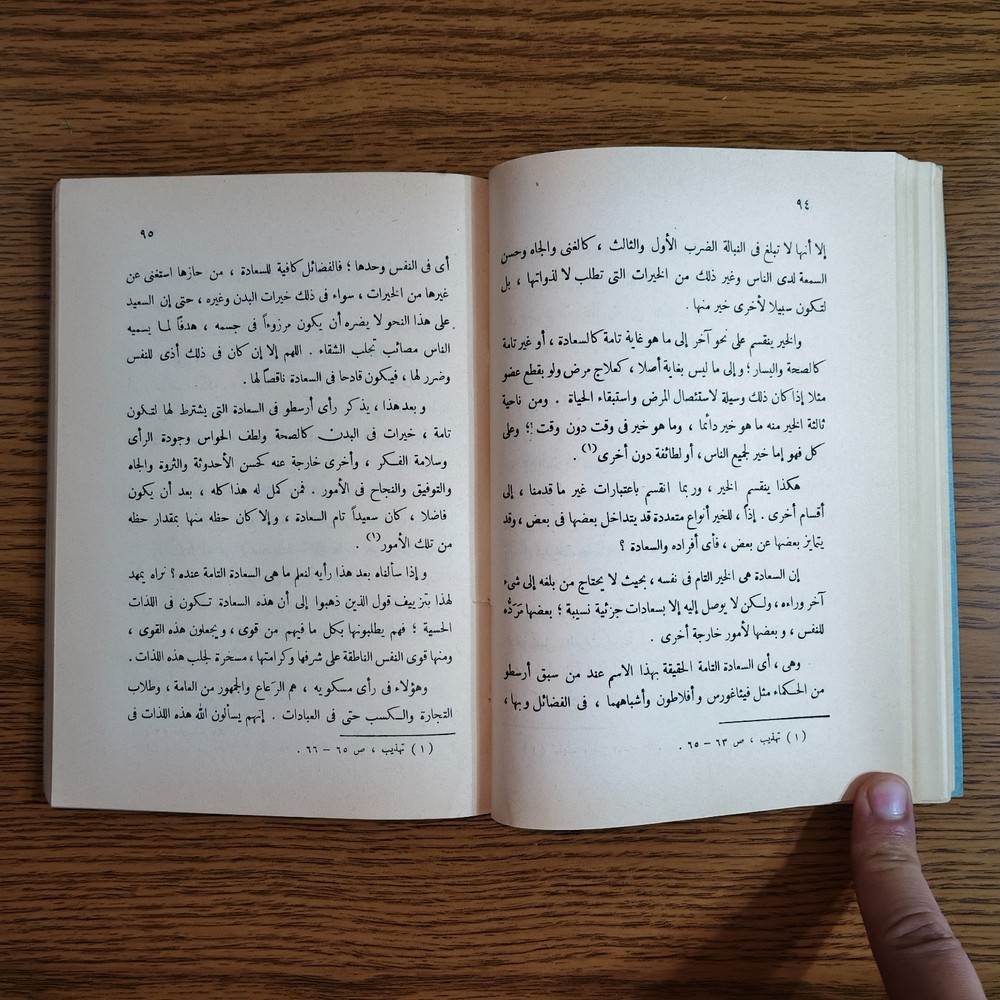 ٩٤
إلا أنها لا تبلغ فى النبالة الضرب الأول والثالث ، كالغنى والجاه وحسن
السمعة لدى الناس وغير ذلك من الخيرات التى تطلب لا لذواتها ، بل
لتكون سبيلا لأخرى خير منها .
والخير ينقسم على نحو آخر إلى ما هو غاية تامة كالسعادة ، أو غير تامة
كالصحة واليسار ؛ وإلى ما ليس بغاية أصلا ، كعلاج مرض ولو بقطع عضو
مثلا إذا كان ذلك وسيلة لاستئصال المرض واستبقاء الحياة . ومن ناحية
ثالثة الخير منه ما هو خير دائما ، وما هو خير فى وقت دون وقت ؛ وعلى
كل فهو إما خير لجميع الناس، أو لطائفة دون أخرى(١) .
هكذا ينقسم الخير ، وربما انقسم باعتبارات غير ما قدمنا ، إلى
أقسام أخرى . إذاً ، للخير أنواع متعددة قد يتداخل بعضها فى بعض ، وقد
يتمايز بعضها عن بعض ، فأى أفراده والسعادة ؟
إن السعادة هى الخير التام فى نفسه ، بحيث لا يحتاج من بلغه إلى شىء
آخر وراءه، ولكن لا يوصل إليه إلا بسعادات جزئية نسبية ؛ بعضها مَرَدُّه
للنفس ، وبعضها لأمور خارجة أخرى .
وهى ، أى السعادة التامة الحقيقة بهذا الاسم عند من سبق أرسطو
من الحكماء مثل فيثاغورس وأفلاطون وأشباههما ، فى الفضائل وبها ،
(١) تهذيب ، ص ٦٣ – ٦٥ .
٩٥
أى فى النفس وحدها ؛ فالفضائل كافية للسعادة ، من حازها استغنى عن
غيرها من الخيرات ، سواء فى ذلك خيرات البدن وغيره ، حتى إن السعيد
على هذا النحو لا يضره أن يكون مرزوءاً فى جسمه ، هدفاً لما يسميه
الناس مصائب تجلب الشقاء . اللهم إلا إن كان فى ذلك أذى للنفس
وضرر لها ، فيكون قادحا فى السعادة ناقصاً لها .
و بعد هذا ، يذكر رأى أرسطو فى السعادة التى يشترط لها لتكون
تامة ، خيرات فى البدن كالصحة ولطف الحواس وجودة الرأى
وسلامة الفكر ، وأخرى خارجة عنه كحسن الأحدوثة والثروة والجاه
والتوفيق والنجاح فى الأمور . فمن كمل له هذا كله ، بعد أن يكون
فاضلا ، كان سعيداً تام السعادة ، وإلا كان حظه منها بمقدار حظه
من تلك الأمور(١) .
و إذا سألناه بعد هذا رأيه لنعلم ما هى السعادة التامة عنده ؟ نراه يمهد
لهذا بتزييف قول الذين ذهبوا إلى أن هذه السعادة تكون فى اللذات
الحسية ؛ فهم يطلبونها بكل ما فيهم من قوى ، ويجعلون هذه القوى ،
ومنها قوى النفس الناطقة على شرفها وكرامتها ، مسخرة لجلب هذه اللذات .
وهؤلاء فى رأى مسكويه ، هم الرَعاع والجمهور من العامة ، وطلاب
التجارة والكسب حتى فى العبادات . إنهم يسألون الله هذه اللذات فى
(١) تهذيب ، ص ٦٥ – ٦٦ .